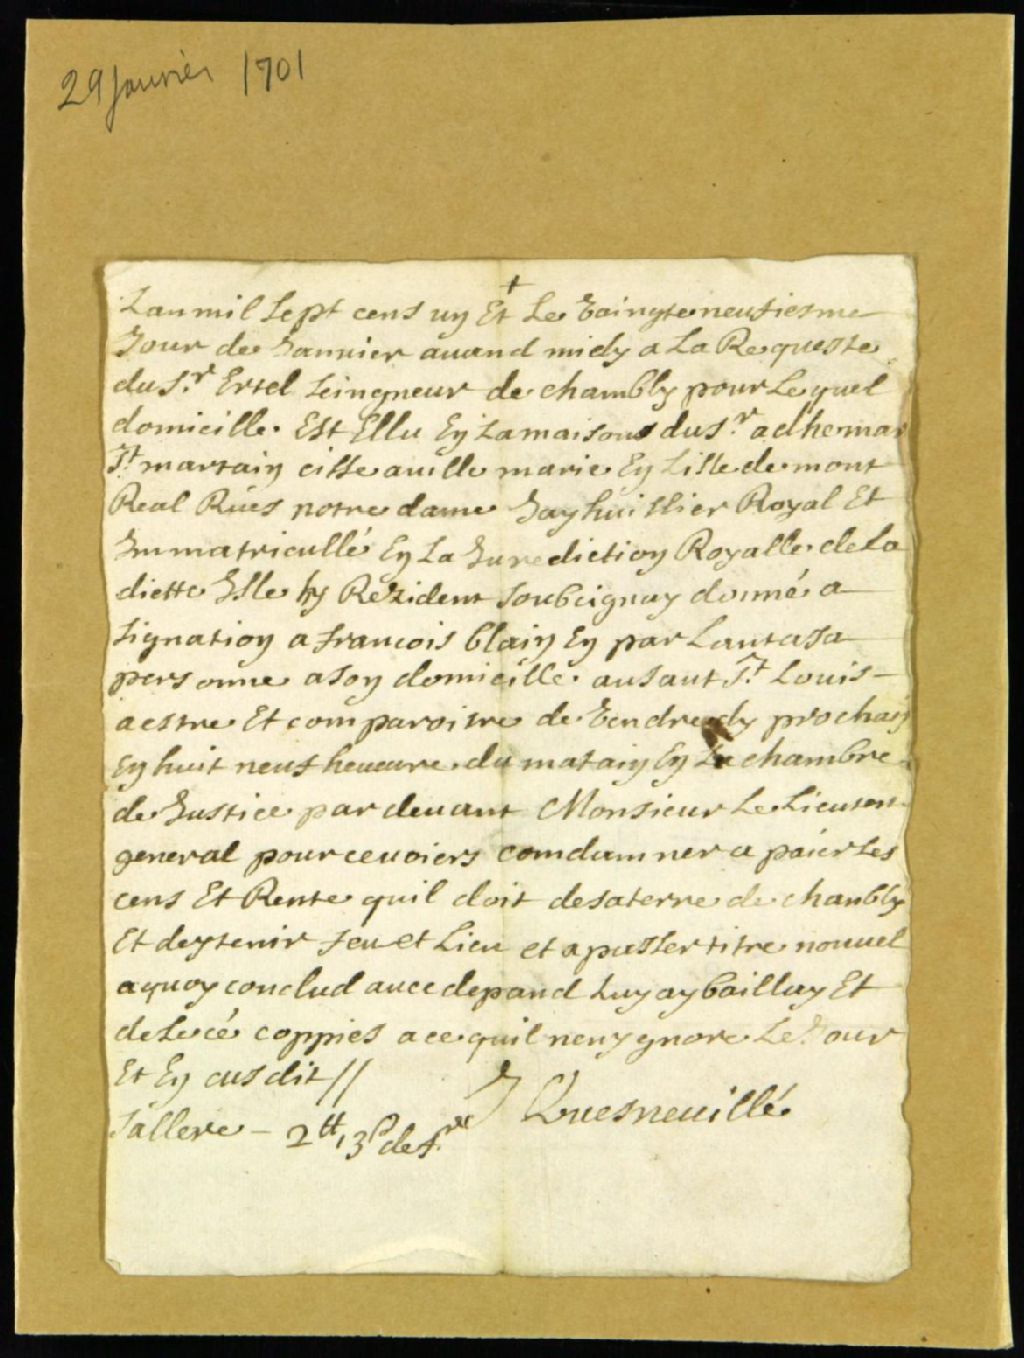 29 Janvier 1701
+
Lan mil Sept cens un Et Le Vaingteneufiesme
Jour de Janvier auand midy a La Requeste
du Sr. Ertel Seingneur de chambly pour Lequel
domicille Est Ellu En La maison du Sr. adhemar
St. martain cisse auille marie En Lisle de mont
Real Rües notre dame Jay huissier Royal Et
Immatricullé En La Jurediction Royalle de La
diette Isle hy Rezident Soubcignay donné a
signation a francois blain En parLant a sa
personne a son domicille au Saut St. Louis
a estre Et comparoitre de Vendredy prochain
En huit neuf heueure du matain En La chambre
de Justice par deuant Monsieur Le Lieutent
general pour ce uoiers comdamner a paier Les
cens Et Rente quil doit de sa terre de chambly
Et dy tenir feu et Lieu et a passer titre nouuel
a quoy conclud auce depand Luy ay baillay Et
de Lecé coppies a ce quil nen ygnore Le Jour
Et En cus dit //
J Quesneuillé
Sallere - 2tt, 3s de fr